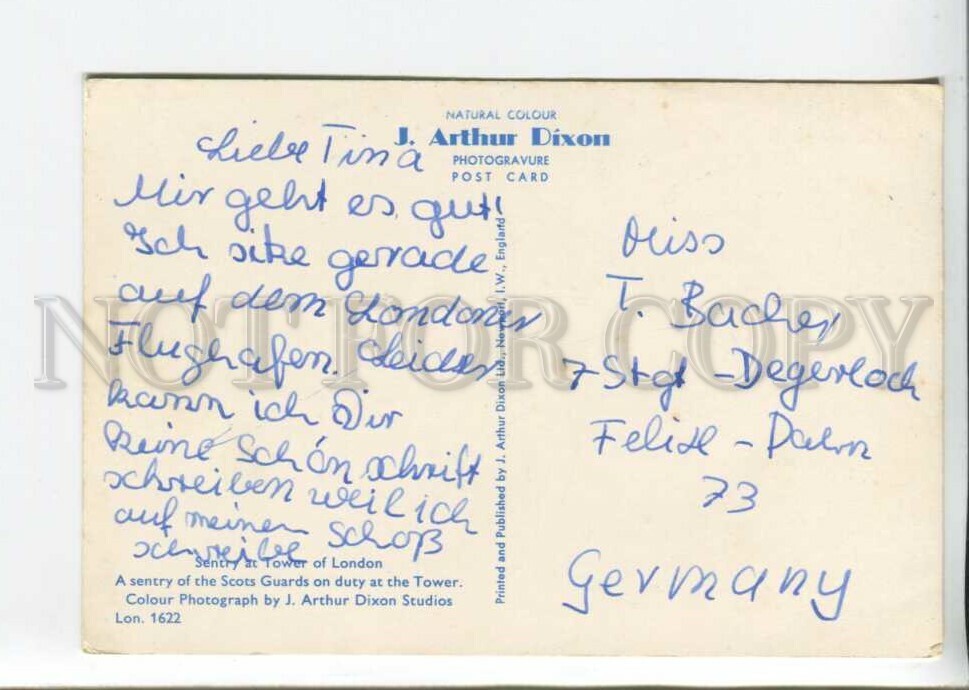 NATURAL COLOUR
J. Arthur Dixon
PHOTOGRAVURE
POST CARD
Liebe Tina
Mir geht es gut!
Ich sitze gerrade
auf dem Londoner
Flughafen. Leider
kann ich Dir
keine Schön schrift
schreiben weil ich
auf meinen Schoß
schreibe
Sentry at Tower of London
A sentry of the Scots Guards on duty at the Tower.
Colour Photograph by J. Arthur Dixon Studios
Lon. 1622
Printed and Published by J. Arthur Dixon Ltd., Newport, I.W., England
Miss
T. Bacher
7 Stgt - Degerloch
Felix - Dahn
73
Germany
NOT FOR COPY